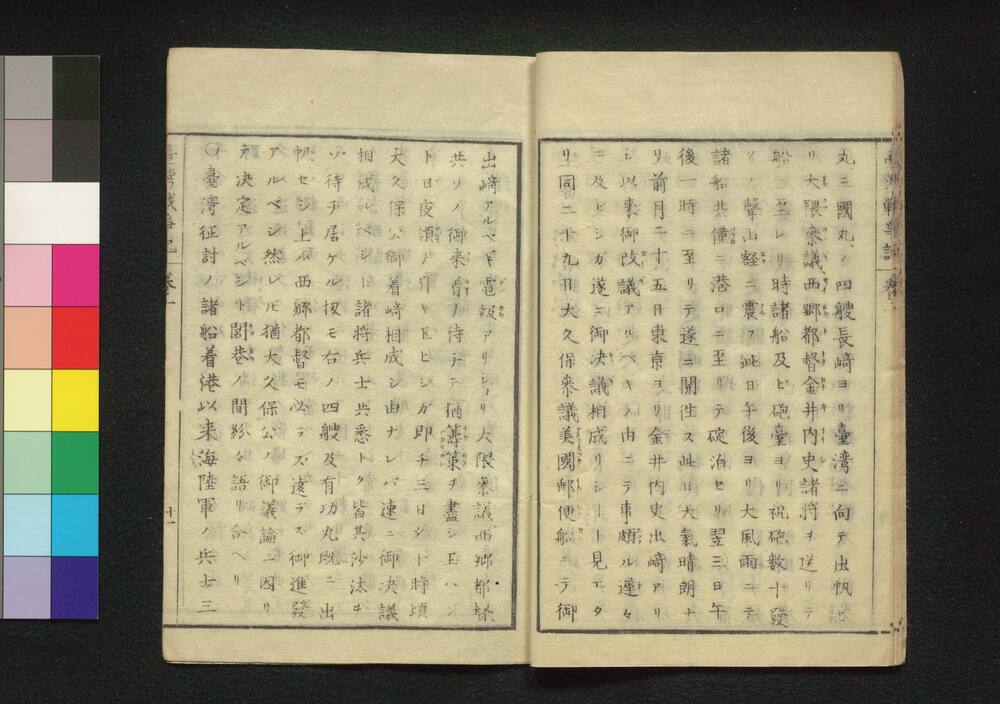 丸三國丸ノ四艘長﨑ヨリ臺湾ニ向テ出帆セ
リ大隈叅議西郷都督金井内史諸将ヲ送リテ
船ニ至レリ時諸船及ヒ砲臺ヨリ祝砲數十發
ソノ聲山壑ニ震フ此日午後ヨリ大風雨ニテ
諸船共僅ニ港口ニ至リテ碇泊セリ翌三日午
後一時ニ至リテ遂ニ開徃ス此日天氣晴朗ナ
リ前月二十五日東京ヨリ金井内史出﨑アリ
シ以来御改議アルベキノ由ニテ事頗ル遲々
ニ及ビシガ遂ニ御決議相成リシ一ト見エタ
リ同二十九日大久保叅議美國郵便舩ニテ御
出﨑アルベキ電報アリシヨリ大隈叅議西郷都督
共ソノ御来着ノ待チテ猶籌策ヲ盡シ玉ハン
ト日夜
ガ即チ三日夕十時頃
大久保公御着﨑相成シ由ナレバ速ニ御決議
相成ルベシト諸将兵士共悉トク皆其沙汰ヲ
ゾ待チ居ケル扨モ右ノ四艘及有功丸既ニ出
帆セシ上ハ西郷都督モ必ラズ遠ラズ御進發
アルベシ然レ𪜈猶大久保公ノ御義論ニ因リ
テ決定アルベシト閭巷ノ間紛々語リ合ヘリ
〇臺湾征討ノ諸船着港以来海陸軍ノ兵士三
十一